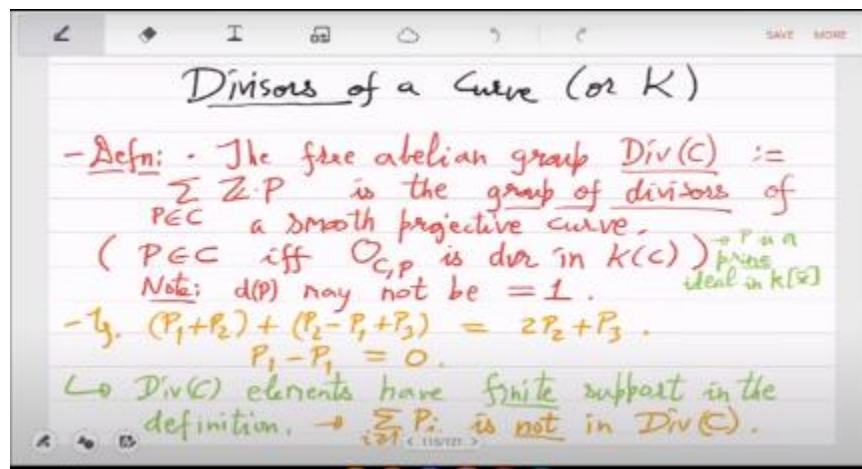 SAVE MORE
Divisors of a Curve (or K)
- Defn: · The free abelian group Div(C) :=
Σ ℤ·P is the group of divisors of
P∈C a smooth projective curve.
( P∈C iff O_{C,P} is dvr in K(C) ) → P is a
prime
ideal in k[x̄]
Note: d(P) may not be = 1.
- Eg. (P₁+P₂) + (P₂-P₁+P₃) = 2P₂+P₃.
P₁-P₁ = 0.
↳ Div(C) elements have finite support in the
definition. → Σ_{i≥1} P_i is not in Div(C).
115/121